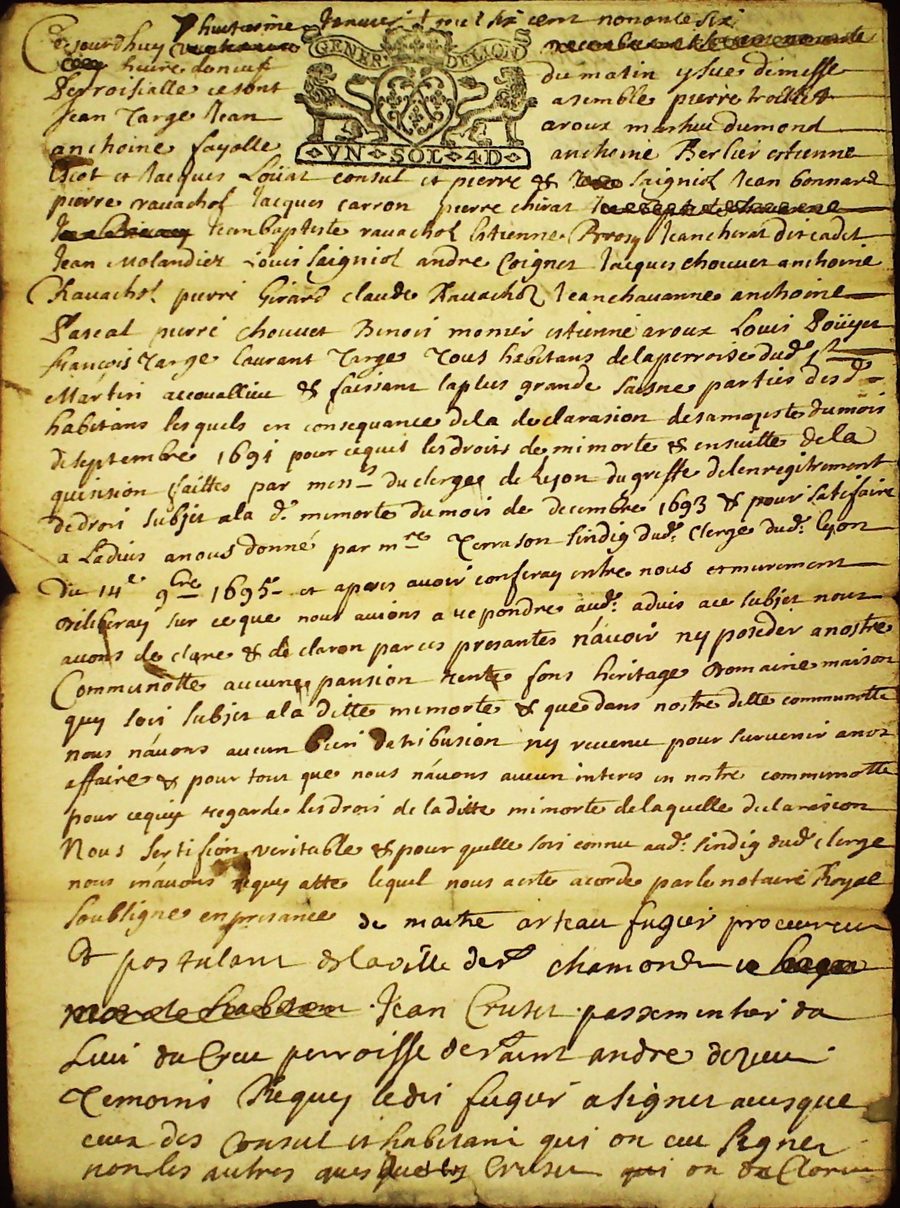 Cejourdhuy huictiesme Janvier mil six cent nonante six
GENER DELION
heure de neuf du matin ysue de messe
Perroisialle ce sont asemble pierre
Jean Targe Jean aroux mathieu dumond
anthoine fayolle anthoine Berlier estienne
VN SOL 4D
et Jacques consul et pierre & Saigniol Jean bonnard
pierre ravachol Jacques carron pierre chirat
Jean baptiste ravachol Estienne Jean chirat dit cadet
Jean Molandier Louis Saigniol andre Coignet Jacques chouvet anthoine
Ravachol pierre Girard claude Ravachol Jean chavanne anthoine
Pascal pierre chouvet Benoit monier estienne aroux Louis
françois Targe laurant Targe Tous habitans de la perroise dud. St
Martin accoallieu & faisant la plus grande saisne parties desd.
habitans lesquels en consequance de la declarasion de sa majeste du mois
de septembre 1691 pour ce quil les droits de mimorte & en suitte de la
faittes par mrs du clerge de Lyon du greffe de lenregitrement
de droit subjet a la d. mimorte du mois de decembre 1693 & pour satisfaire
a Ladvis a nous donné par mre Terrason sindig dud. Clerge dud. lyon
Du 14e 9bre 1695 et apres avoir conferay entre nous et murement
deliberay sur ce que nous avions a repondre aud. advis au subjet nous
avons declare & declaron par ces presantes n'avoir ny poseder a nostre
Communotte aucune pansion rente fons heritage domaine maison
quy soit subjet a la ditte mimorte & que dans nostre ditte communotte
nous n'avons aucun bien detribusion ny revenu pour survenir a nos
affaire & pour tout que nous n'avons aucun interes en nostre communotte
pour ce quy regarde les droit de la ditte mimorte de laquelle declarasion
Nous sertifion veritable & pour quelle soit connu aud. sindig dud. clerge
nous n'avons requy atte lequel nous a este acorde par le notaire Royal
soubsigne en presance de maitre arteau fugier procureur
et postulant de la ville de St chamond
Jean Cruset passementier du
Lieu du Creu perroisse de saint andre
Temoins Requy ledit fugier a signer avesque
ceux des Consul et habitant qui on seu signer
non les autres Cruset on de Clorer